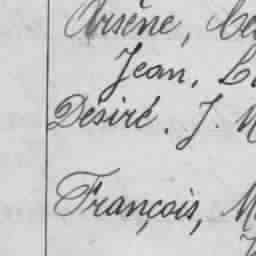 Arsène,
Jean,
Désiré, J.
François,